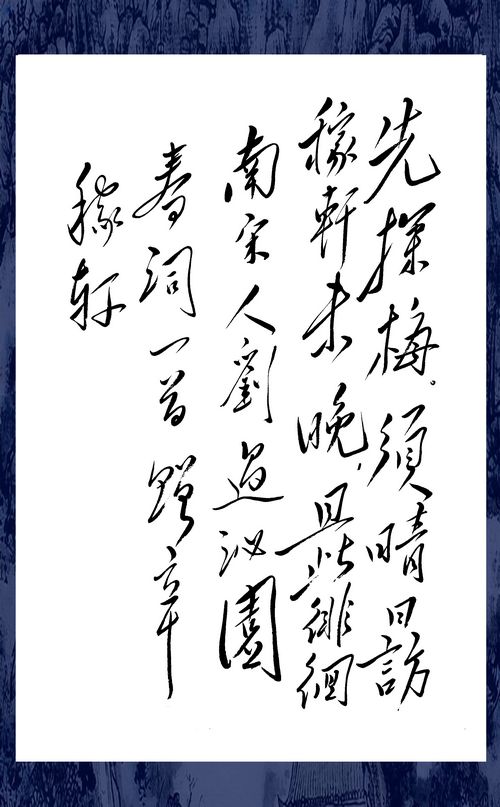 先探梅。須晴日訪
稼軒未晚，且此徘徊
南宋人劉過沁園
春詞一首 贈辛
稼轩